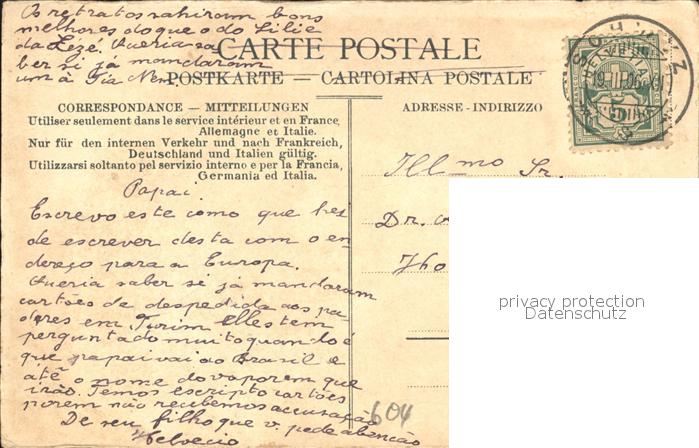 Os retratos sahiram bons
melhores do que o do Lilie
da Zézé. Queria sa-
ber si já mandaram
um à Tia Nem.
CARTE POSTALE
POSTKARTE — CARTOLINA POSTALE
CORRESPONDANCE — MITTEILUNGEN
Utiliser seulement dans le service intérieur et en France,
Allemagne et Italie.
Nur für den internen Verkehr und nach Frankreich,
Deutschland und Italien gültig.
Utilizzarsi soltanto pel servizio interno e per la Francia,
Germania ed Italia.
ADRESSE-INDIRIZZO
SCHWYZ
HELVETIA
5
Papai
Escrevo este como que hei
de escrever desta com o en-
dereço para a Europa.
Queria saber se já mandaram
cartões de despedida aos pa-
dres em Turim Elles tem
perguntado muito quando é
que papai vai ao Brasil e
até o nome do vapor em que
irão. Temos escripto cartões
porem não recebemos accusação
De seu filho que v. pede a benção
Helvecio
604
Ill.mo Sr.
Dr.
Ho
privacy protection
Datenschutz